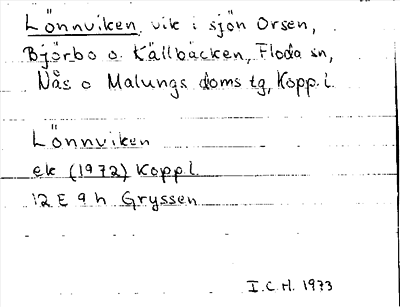 Lönnviken, vik i sjön Orsen,
Björbo o. Källbäcken, Floda sn,
Nås o Malungs doms tg, Kopp.l.
Lönnviken
ek (1972) Kopp l
12 E 9 h Gryssen
I.C.H. 1973